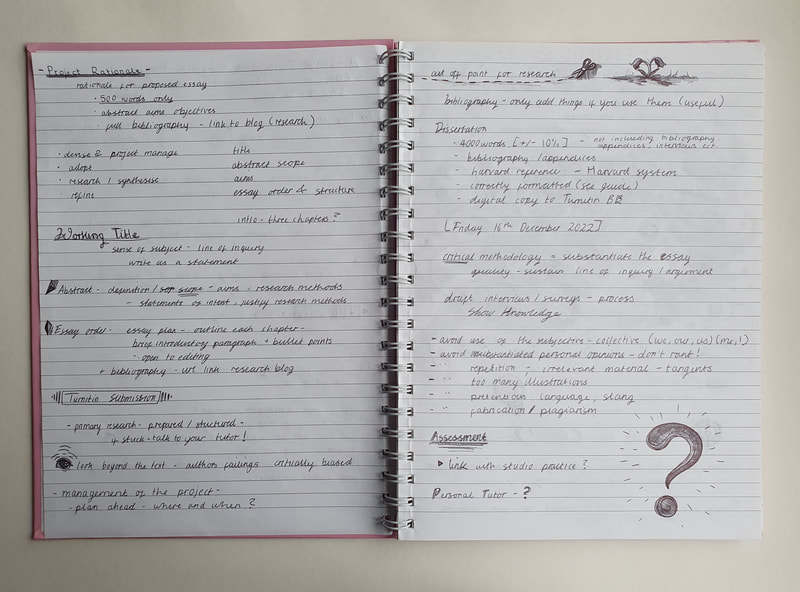 - Project Rationale -
rationale for proposed essay
· 500 words only
· abstract aims objectives
· full bibliography - link to blog (research)
· devise & project manage title
· adopt abstract scope
· research / synthesise aims
· refine essay order & structure
intro - three chapters?
Working Title
sense of subject - line of inquiry
write as a statement
Abstract - definition / scope - aims - research methods
- statements of intent, justify research methods
Essay order - essay plan - outline each chapter -
brief introductory paragraph + bullet points
- open to editing
+ bibliography - url link research blog
Turnitin Submission
- primary research - prepared / stuctured -
if stuck - talk to your tutor!
look beyond the text - authors failings critically biased
- management of the project -
- plan ahead - where and when?
cut off point for research
bibliography - only add things if you use them (useful)
Dissertation
· 4000 words [+/- 10%] - not including bibliography
appendices, interviews ect.
- bibliography / appendices
- harvard reference - Harvard system
- correctly formatted (see guide)
- digital copy to Turnitin BB
[Friday 16th December 2022]
critical methodology = substantiate the essay
quality - sustain line of inquiry / argument
draft interviews / surveys - process
Show Knowledge
- avoid use of the subjective - collective (we, our, us) (me, I)
- avoid unsubstantiated personal opinions - don't rant!
- " repetition - irrelevant material - tangents
- " too many illustrations
- " pretentious language, slang
- " fabrication / plagiarism
Assessment
link with studio practice?
Personal Tutor - ?
?